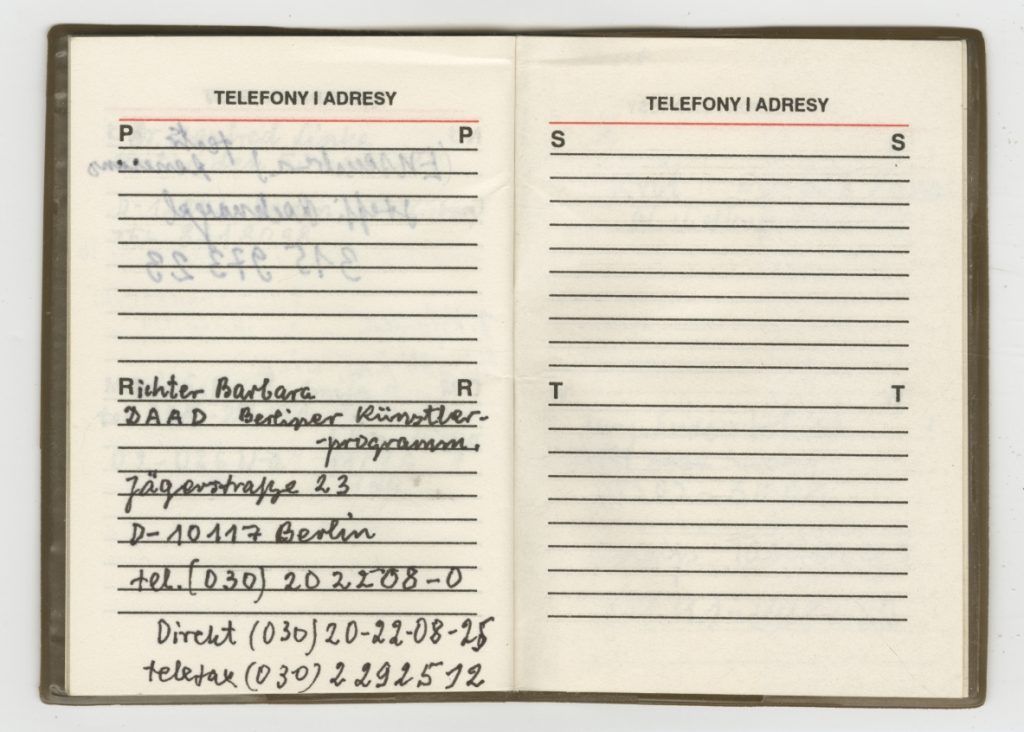 TELEFONY I ADRESY
P P
Richter Barbara R
DAAD Berliner Künstler-
-programm.
Jägerstraße 23
D-10117 Berlin
tel. (030) 202208-0
Direkt (030) 20-22-08-25
telefax (030) 2292512
TELEFONY I ADRESY
S S
T T